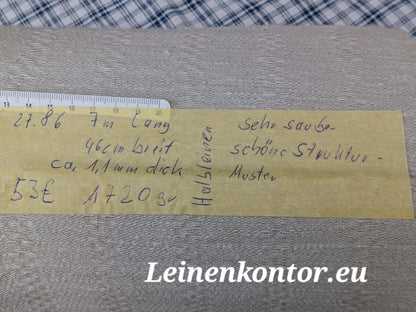 13 14 15 16 17 18 19 20
27.86 7m lang
46cm breit
ca. 1,1mm dick
53€ 1720 gr
Halbleinen
sehr sauber
schöne Struktur-
Muster
Leinenkontor.eu